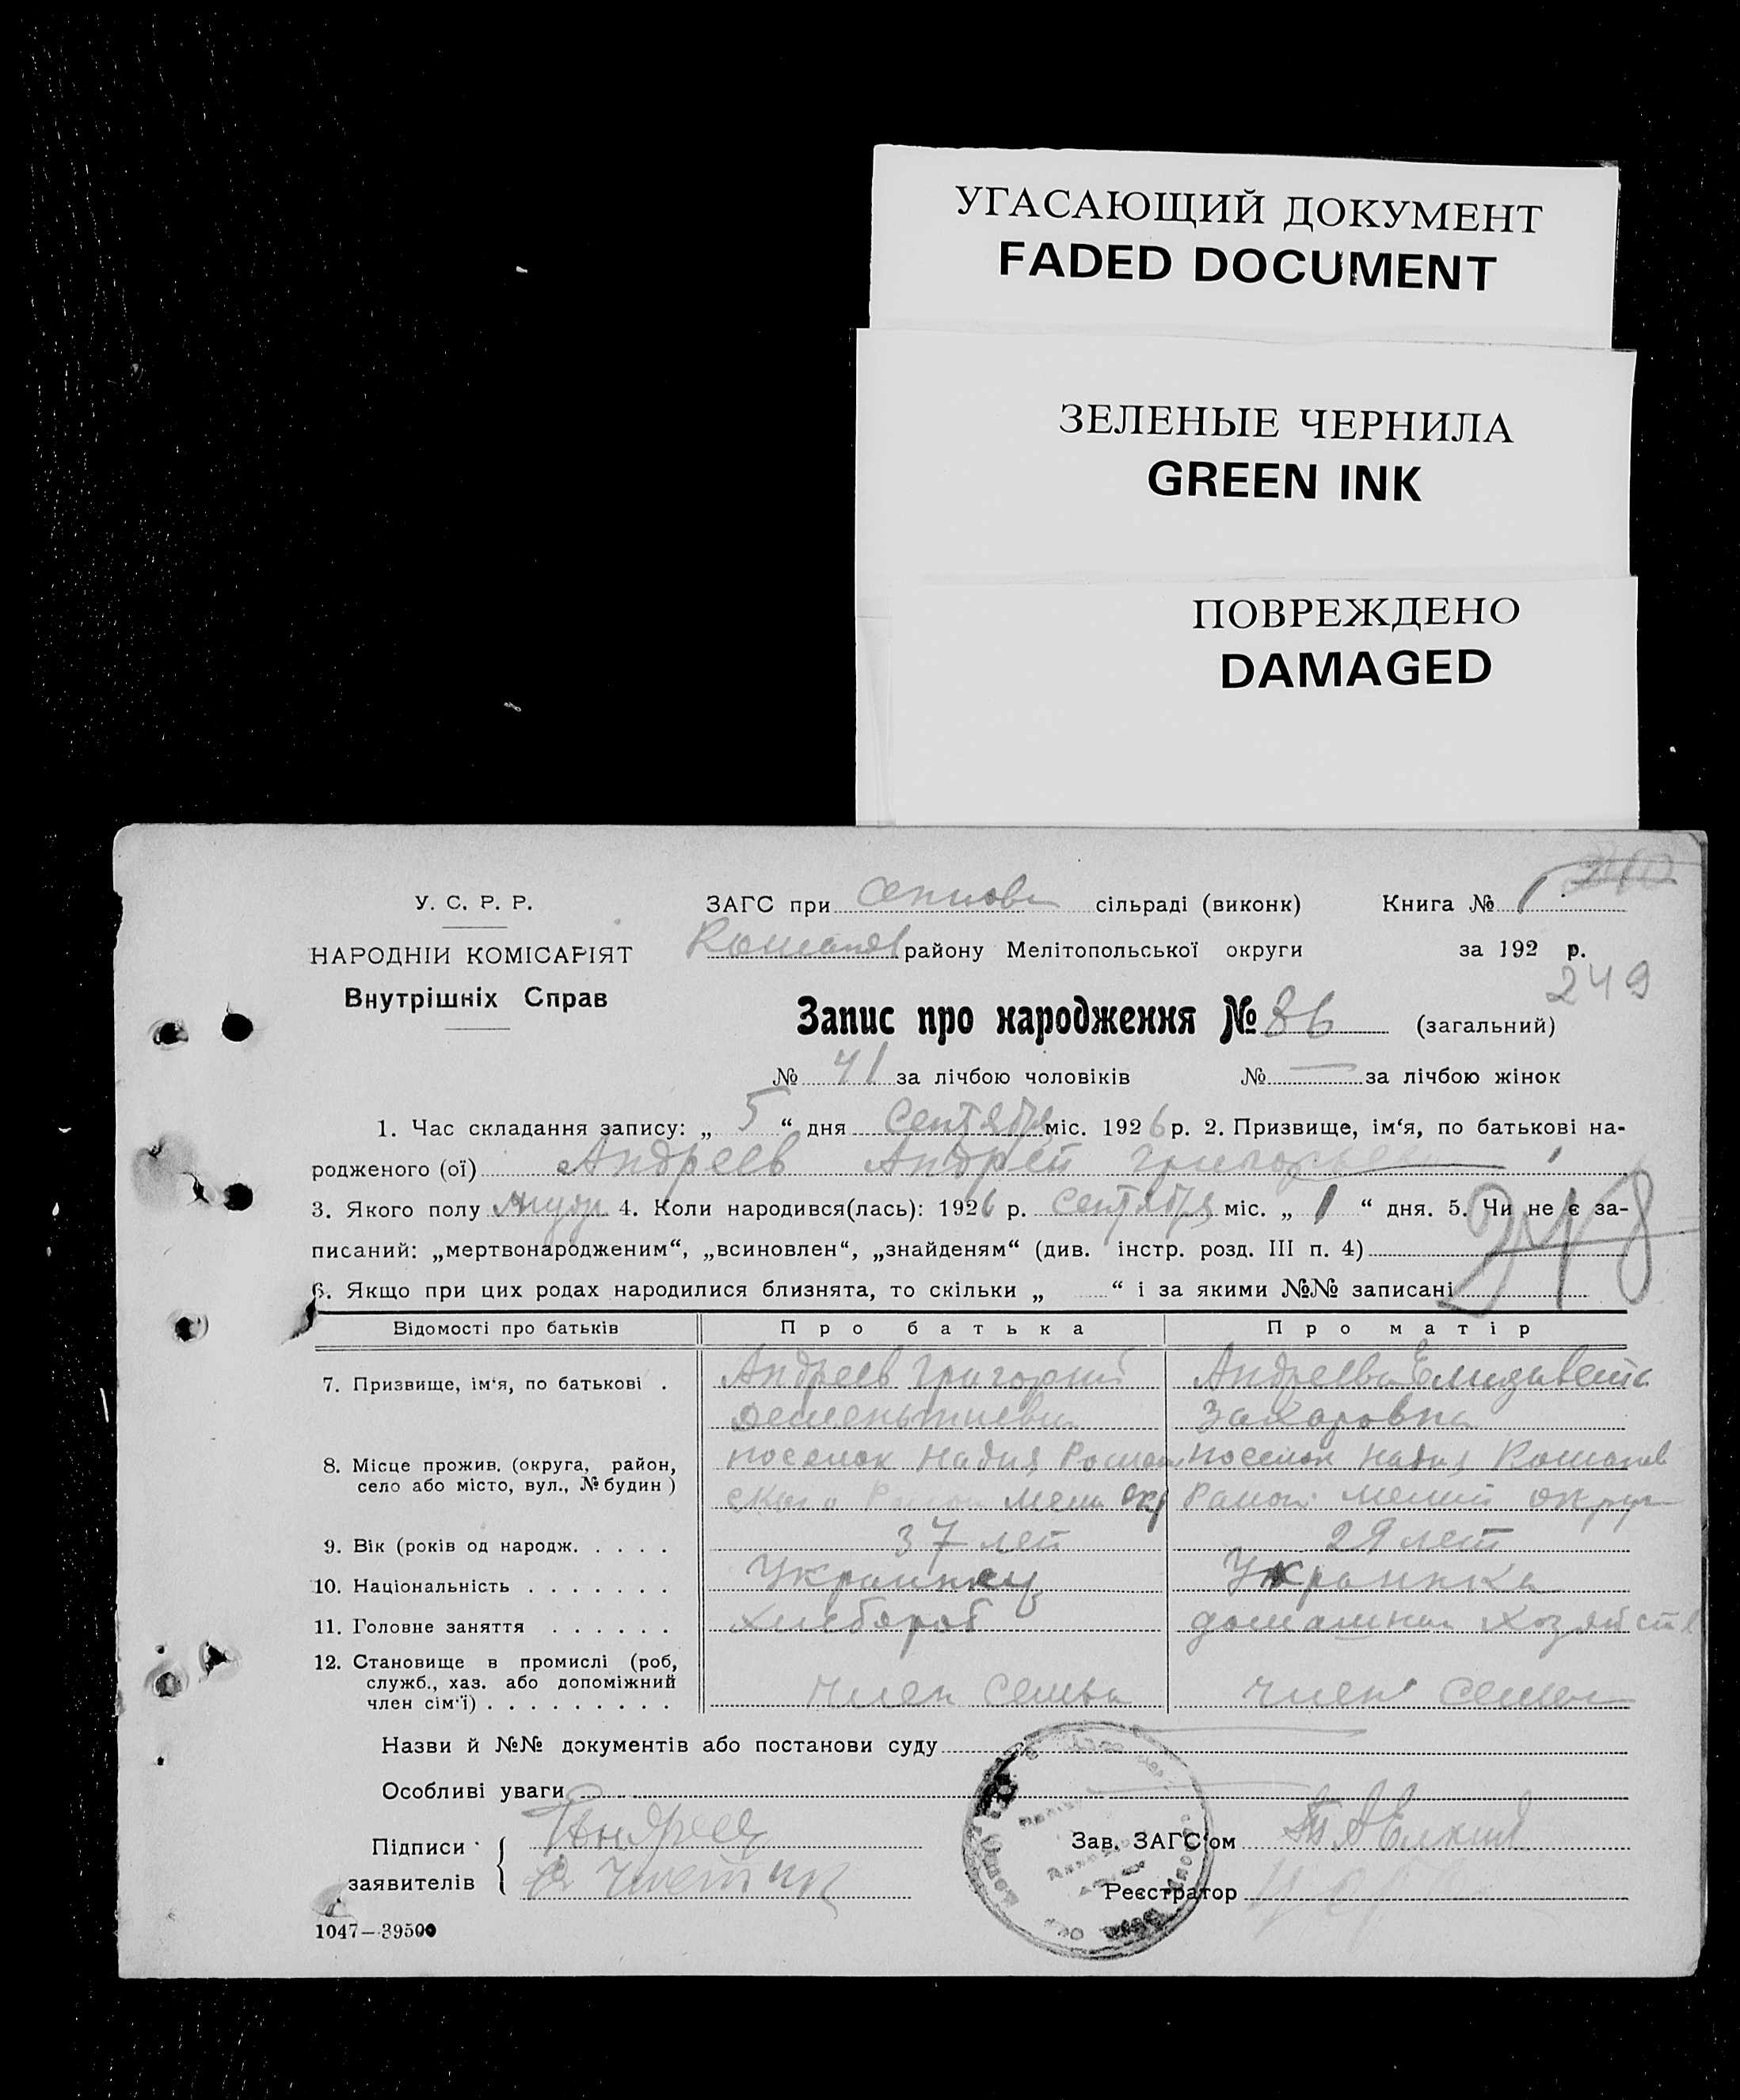 УГАСАЮЩИЙ ДОКУМЕНТ
FADED DOCUMENT
ЗЕЛЕНЫЕ ЧЕРНИЛА
GREEN INK
ПОВРЕЖДЕНО
DAMAGED
У. С. Р. Р.
ЗАГС при сільраді (виконк) Книга № 1
НАРОДНІЙ КОМІСАРІЯТ
району Мелітопольської округи за 192 р.
Внутрішніх Справ
249
Запис про народження № 86 (загальний)
№ 41 за лічбою чоловіків № — за лічбою жінок
1. Час складання запису: „ 5 “ дня Сентября міс. 1926 р. 2. Призвище, ім‘я, по батькові на-
родженого (ої) Андреев Андрей Григорьевич
3. Якого полу муж 4. Коли народився(лась): 1926 р. Сентября міс. „ 1 “ дня. 5. Чи не є за-
писаний: „мертвонародженим“, „всиновлен“, „знайденям“ (див. інстр. розд. III п. 4)
248
6. Якщо при цих родах народилися близнята, то скільки „ “ і за якими №№ записані
Відомості про батьків Про батька Про матір
7. Призвище, ім‘я, по батькові . Андреев Григорий Андреева Елизавета
Захаровна
8. Місце прожив. (округа, район, поселок Надия поселок Надия
село або місто, вул., № будин ) ского Район Мели окр Район Мелит округ
9. Вік (років од народж. . . . . 37 лет 29 лет
10. Національність . . . . . . . Украинец Украинка
11. Головне заняття . . . . . . Хлебороб домашнее хозяйств
12. Становище в промислі (роб,
служб., хаз. або допоміжний
член сім‘ї) . . . . . . . . . член семьи член семьи
Назви й №№ документів або постанови суду
Особливі уваги
Підписи Андреев Зав. ЗАГС‘ом
заявителів Реєстратор
1047—39500